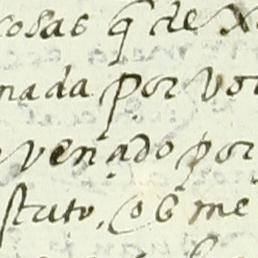 cosas q̃ de
nada por vo
venado por
stuto, me